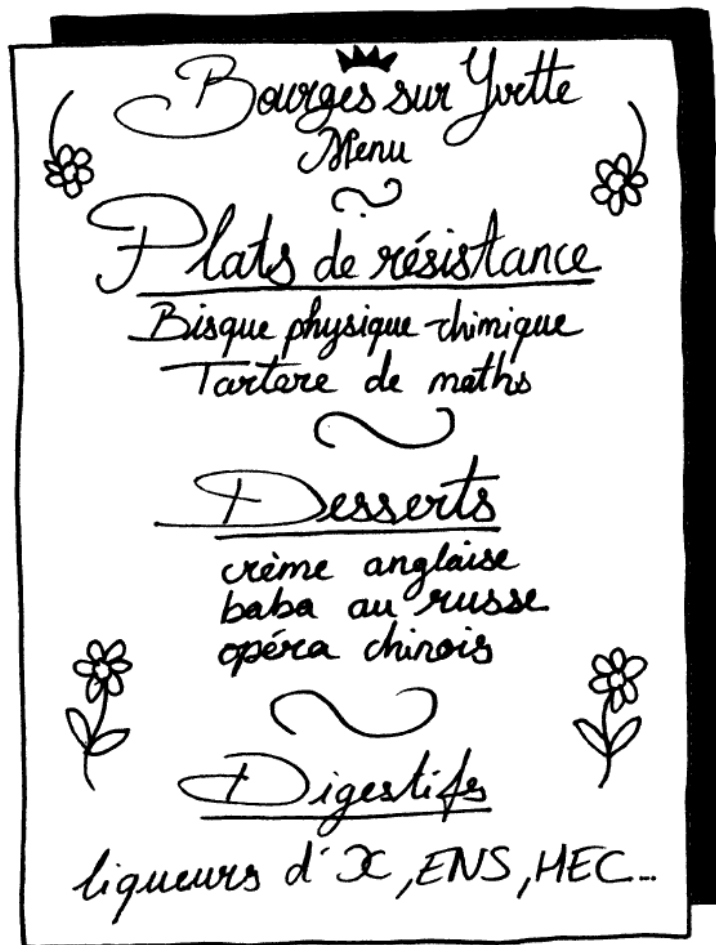 Bourges sur Yvette
Menu
Plats de résistance
Bisque physique-chimique
Tartare de maths
Desserts
crème anglaise
baba au russe
opéra chinois
Digestifs
liqueurs d'X, ENS, HEC...